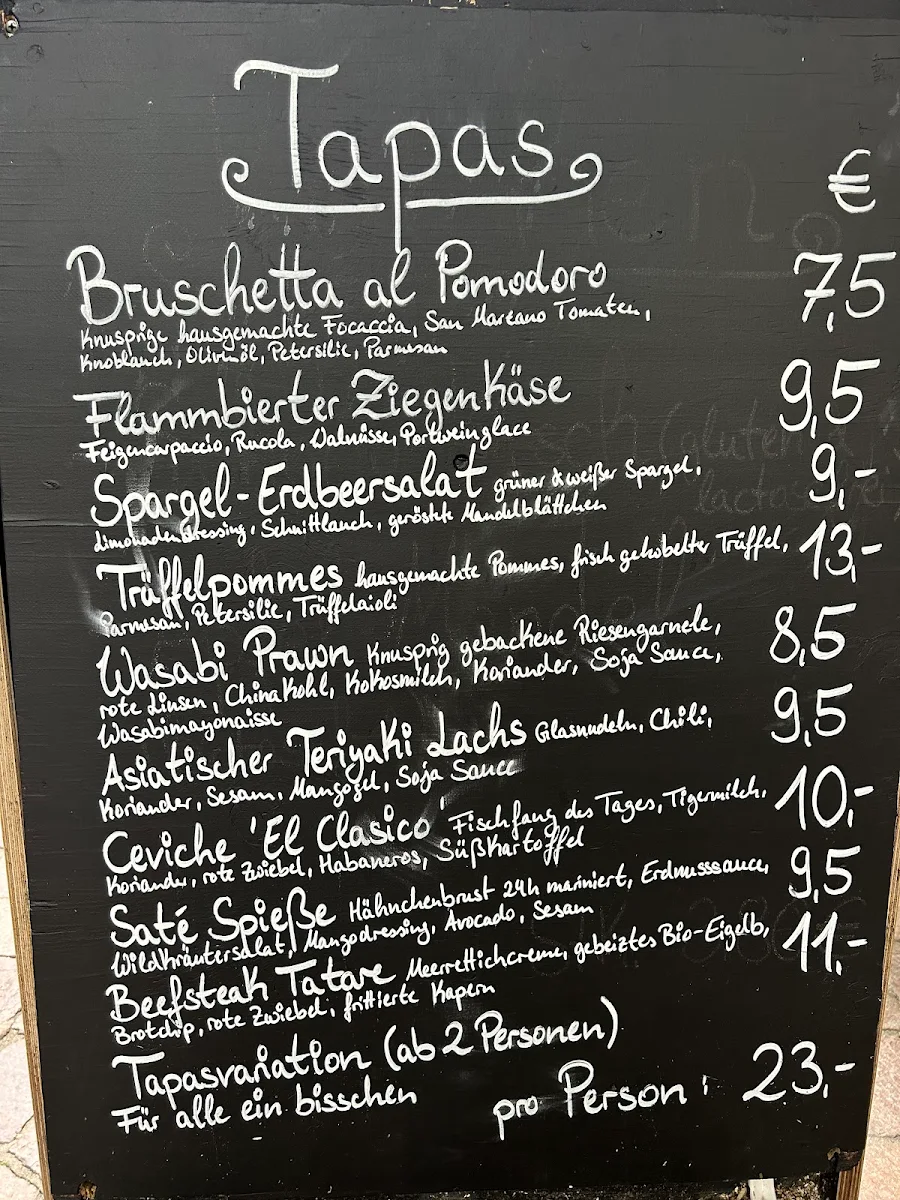 Tapas
€
Bruschetta al Pomodoro 7,5
Knusprige hausgemachte Focaccia, San Marzano Tomaten,
Knoblauch, Olivenöl, Petersilie, Parmesan
Flammbierter Ziegenkäse 9,5
Feigencarpaccio, Rucola, Walnüsse, Portweinglace
Spargel-Erdbeersalat grüner & weißer Spargel, 9,-
Limonadendressing, Schnittlauch, geröstete Mandelblättchen
Trüffelpommes hausgemachte Pommes, frisch gehobelter Trüffel, 13,-
Parmesan, Petersilie, Trüffelaioli
Wasabi Prawn Knusprig gebackene Riesengarnele, 8,5
rote Linsen, Chinakohl, Kokosmilch, Koriander, Soja Sauce,
Wasabimayonaisse
Asiatischer Teriyaki Lachs Glasnudeln, Chili, 9,5
Koriander, Sesam, Mangogel, Soja Sauce
Ceviche 'El Clasico' Fischfang des Tages, Tigermilch, 10,-
Koriander, rote Zwiebel, Habaneros, Süßkartoffel
Saté Spieße Hähnchenbrust 24h mariniert, Erdnusssauce, 9,5
Wildkräutersalat, Mangodressing, Avocado, Sesam
Beefsteak Tatare Meerrettichcreme, gebeiztes Bio-Eigelb, 11,-
Brotchip, rote Zwiebel, frittierte Kapern
Tapasvariation (ab 2 Personen)
Für alle ein bisschen pro Person: 23,-